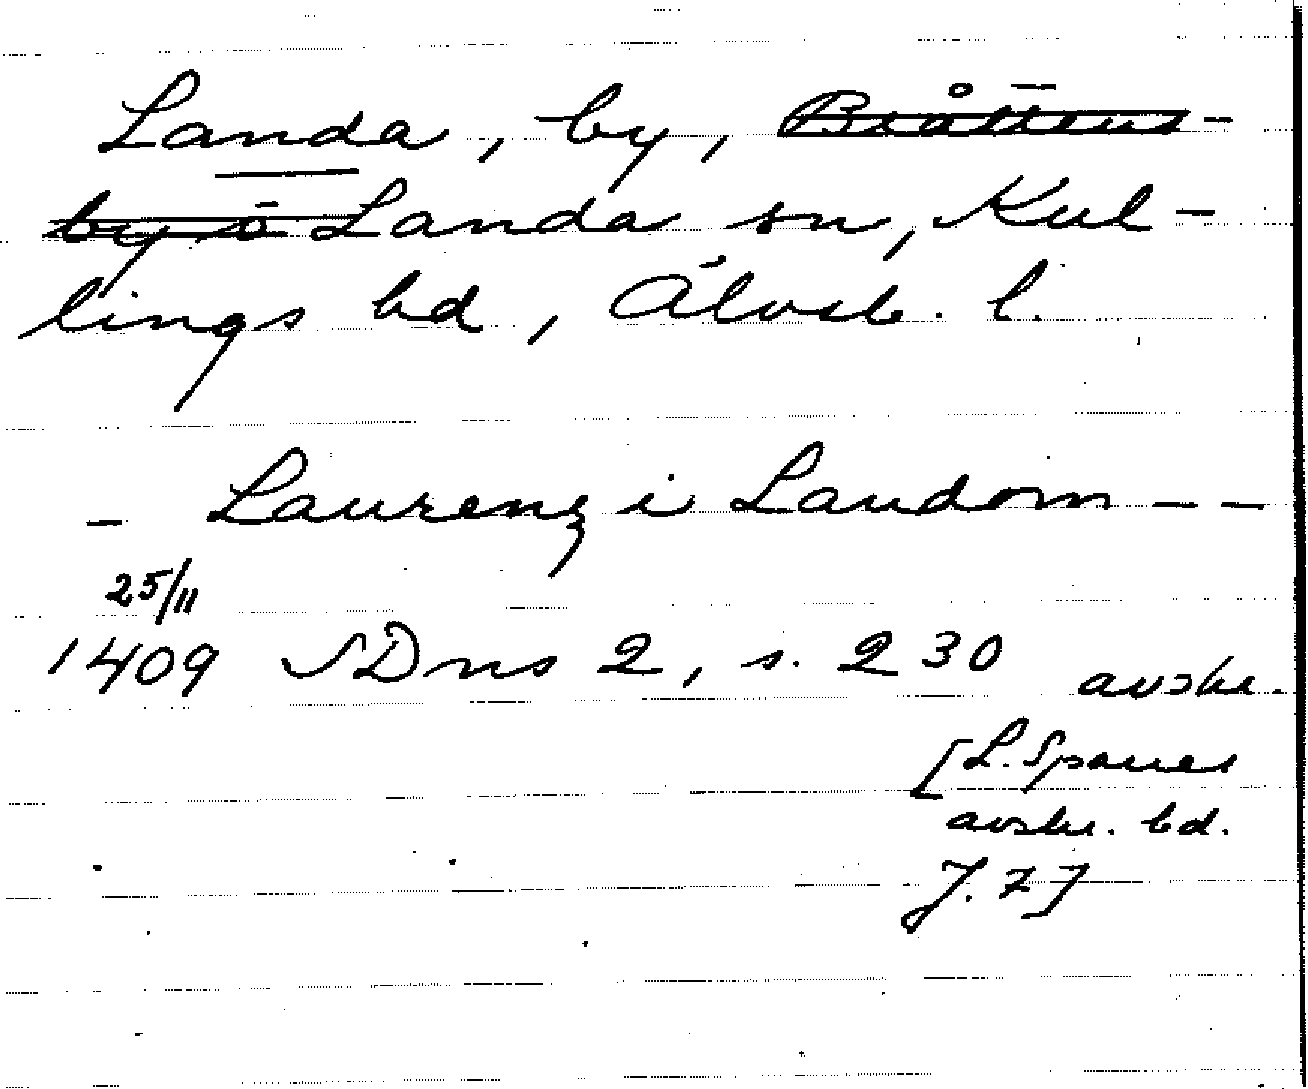 Landa, by, Bråttens-
by o Landa sn, Kul-
lings hd, Älvsb. l.
- Laurenz i Landom - -
25/11
1409 SDns 2, s. 230 avskr.
[L. Sparres
avskr. bd.
J. 7]